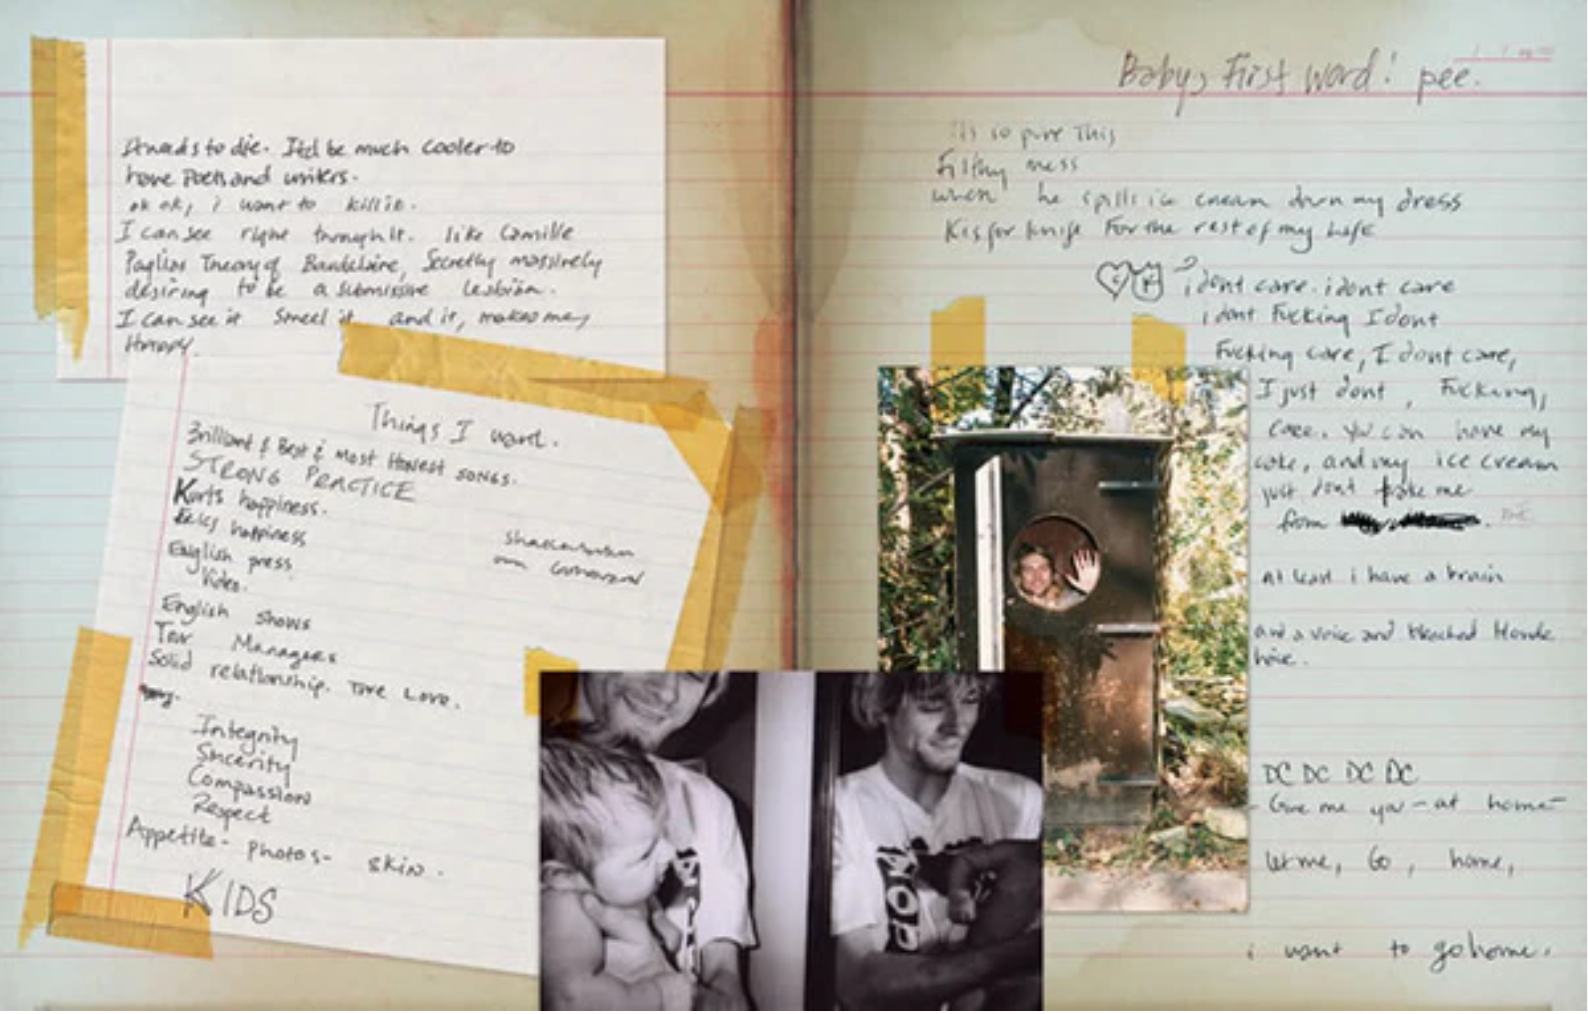 to die. It'd be much cooler to
have Poets and writers.
ok ok, i want to kill it.
I can see right through it. like Camille
Paglias Theory of Baudelaire, Secretly massively
desiring to be a submissive Lesbian.
I can see it Smell it and it, makes me,
Things I want.
Brilliant & Best & Most Honest SONGS.
STRONG PRACTICE
Kurts happiness.
Erics happiness
English press
Video.
English shows
Tour Managers
Solid relationship. True Love.
Integrity
Sincerity
Compassion
Respect
Appetite - photos - skin.
KIDS
Babys First word! pee.
its so pure This
Filthy mess
when he spills ice cream down my dress
K is for knife For the rest of my Life
i dont care. i dont care
i dont Fucking I dont
Fucking care, I dont care,
I just dont, Fucking,
care. you can have my
coke, and my ice cream
just dont take me
from
At least i have a brain
and a voice and bleached blonde
DC DC DC DC
Give me you - at home -
Let me, Go, home,
i want to go home.